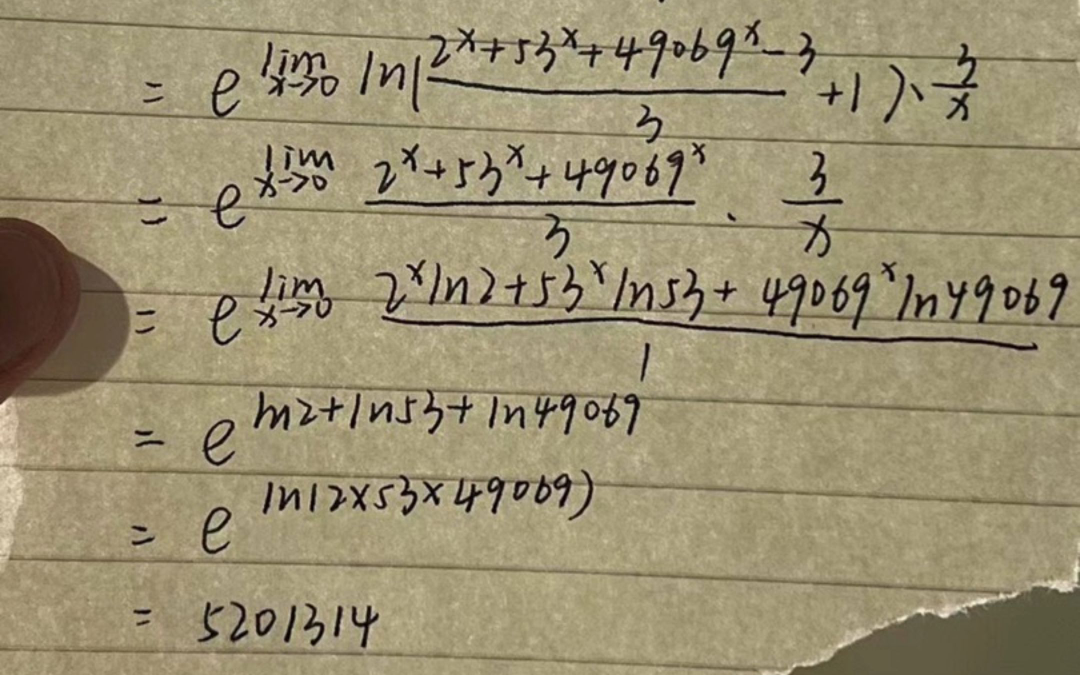 = e^{lim_{x→0} ln(\frac{2^x+53^x+49069^x-3}{3}+1)·\frac{3}{x}}
= e^{lim_{x→0} \frac{2^x+53^x+49069^x}{3}·\frac{3}{x}}
= e^{lim_{x→0} \frac{2^x ln2+53^x ln53+49069^x ln49069}{1}}
= e^{ln2+ln53+ln49069}
= e^{ln(2×53×49069)}
= 5201314